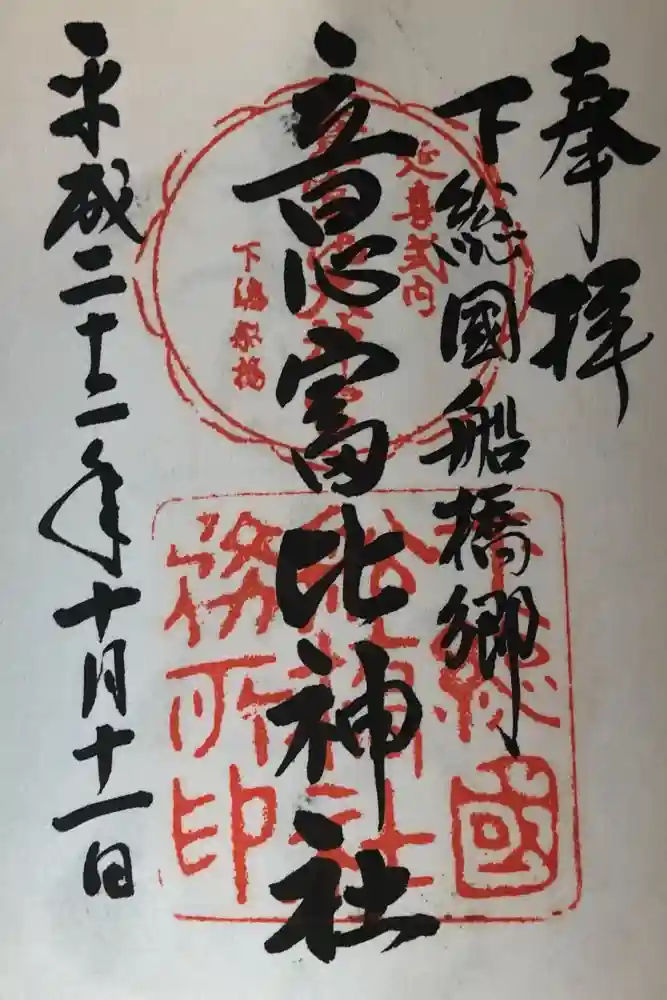 奉拝
下総國船橋郷
意富比神社
平成二十二年十月十一日
延喜式内
下總船橋
下總國
船橋大神社
務所印